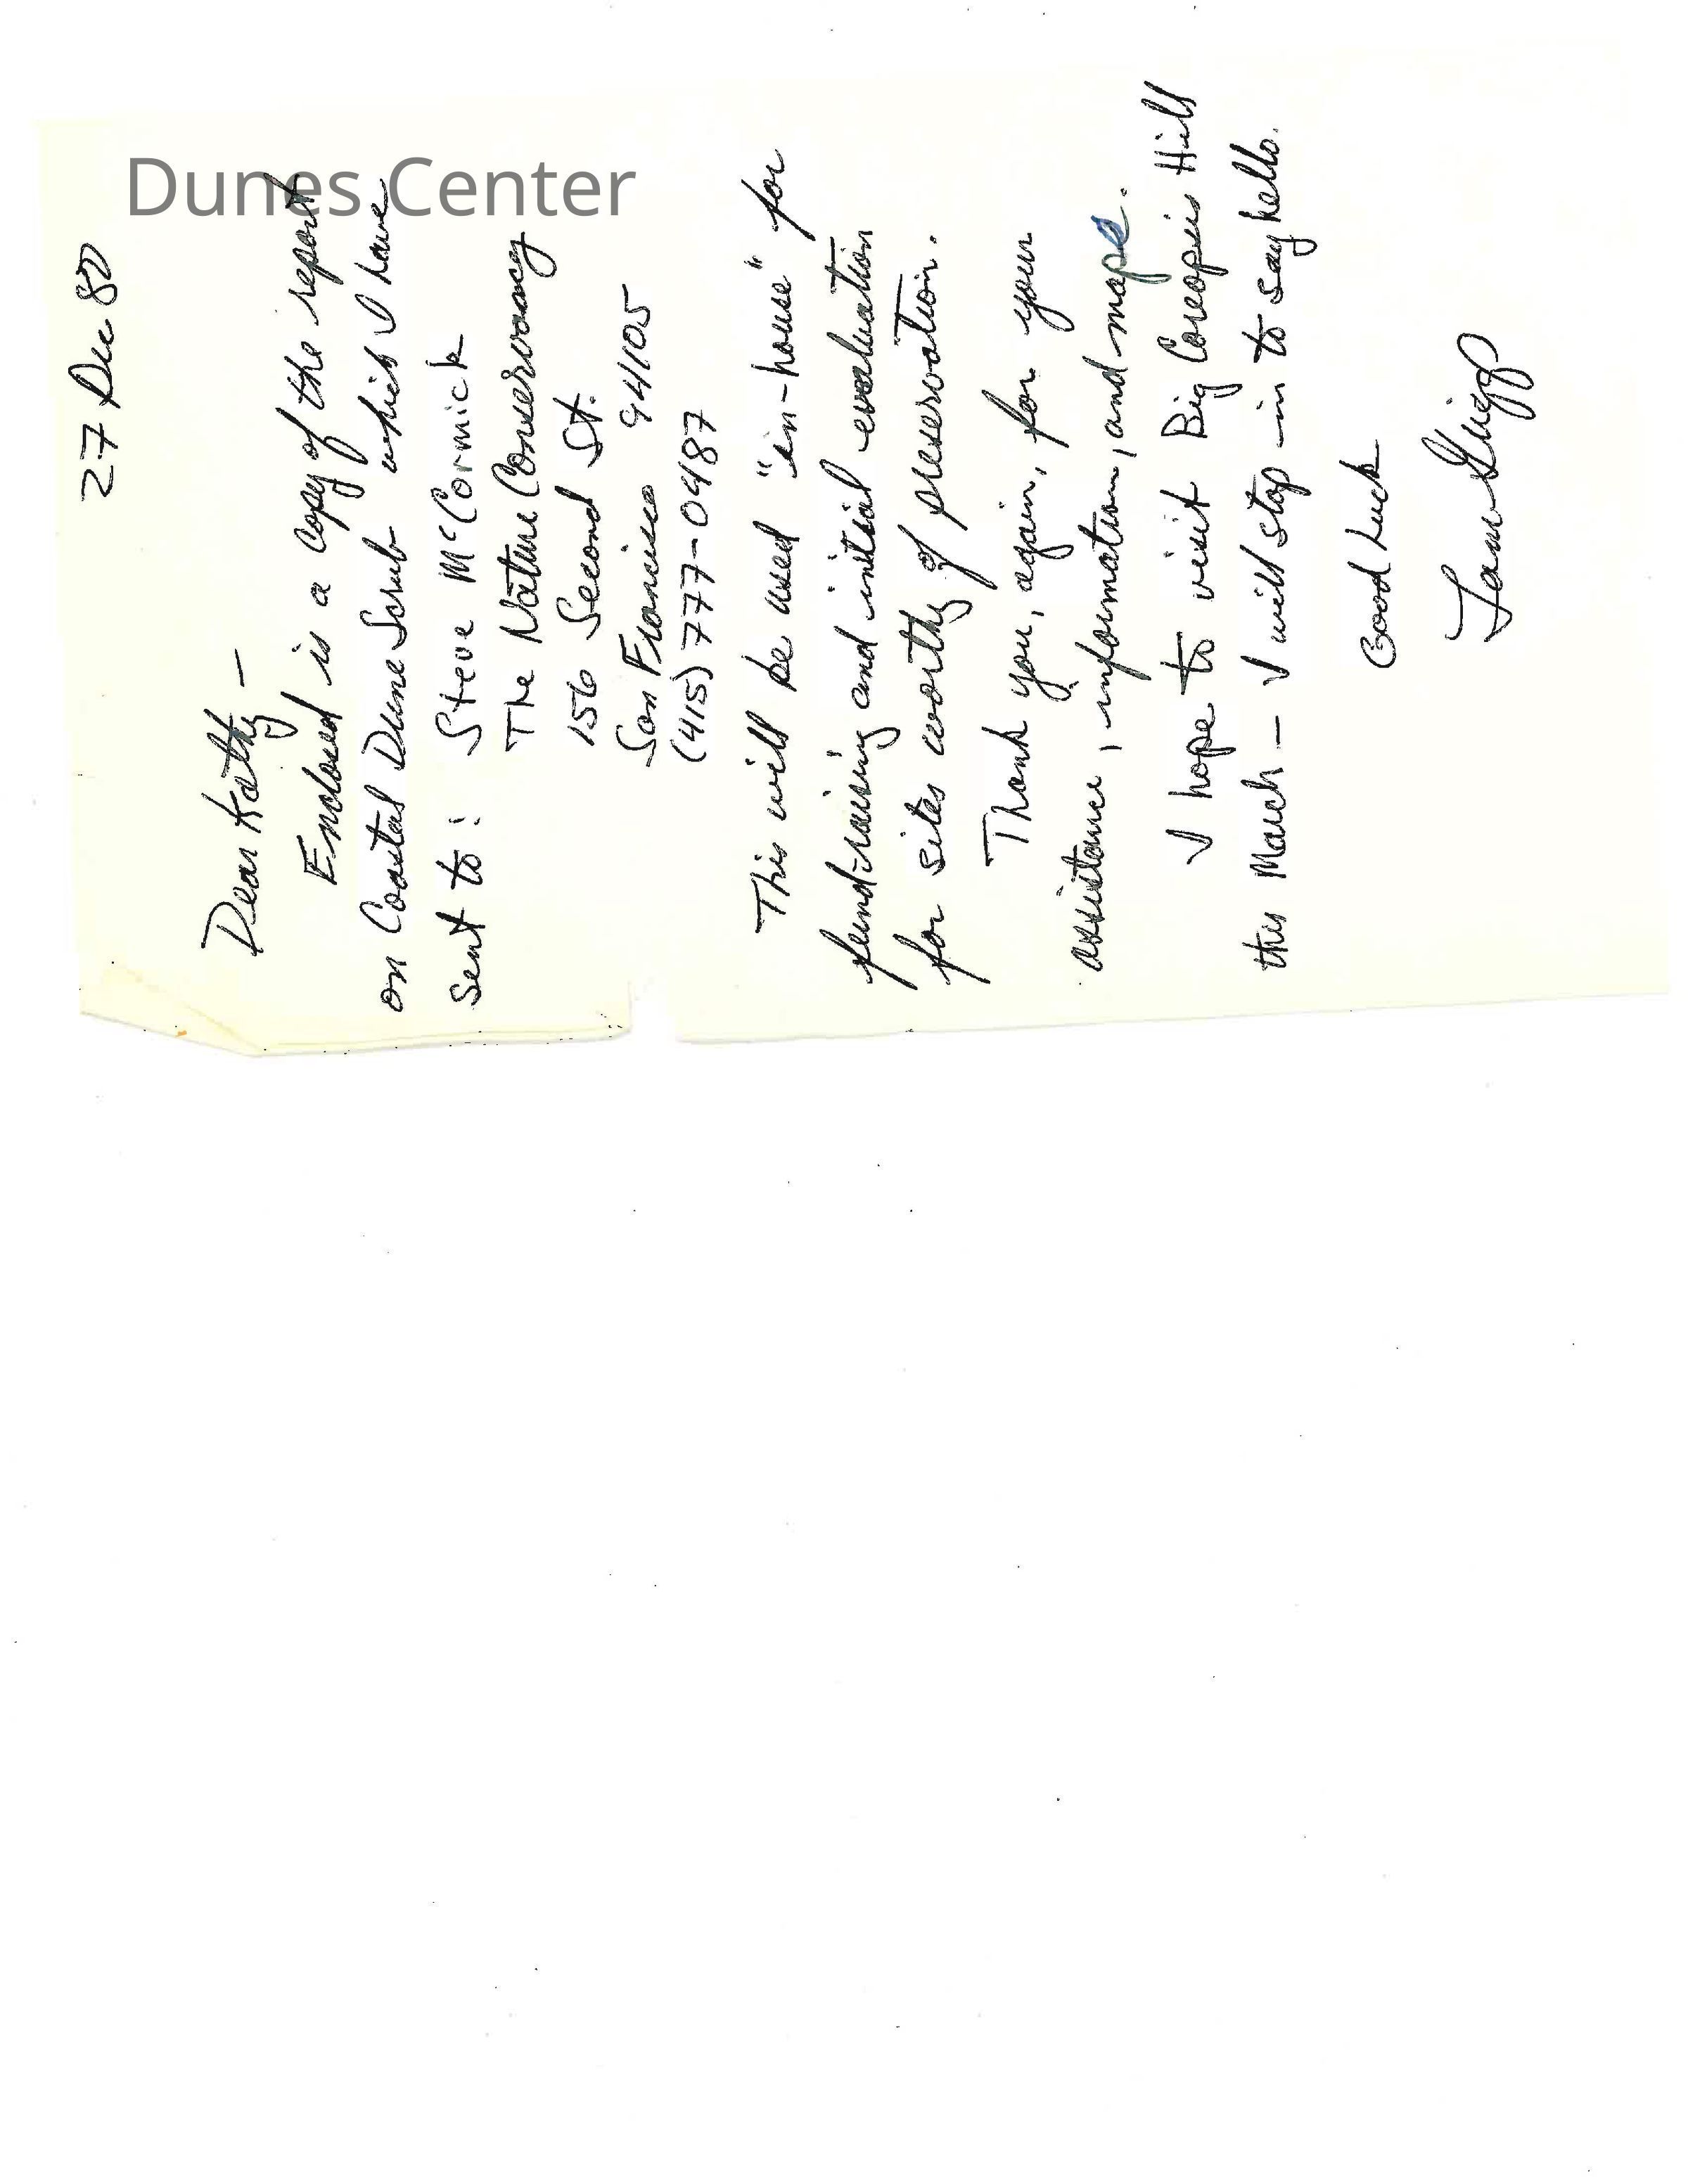 Dunes Center
27 Dec 80
Dear Kathy –
Enclosed is a copy of the report
on Coastal Dune Scrub which I have
sent to: Steve McCormick
The Nature Conservancy
156 Second St.
San Francisco 94105
(415) 777-0487
This will be used "in-house" for
fund-raising and initial evaluation
for sites worthy of preservation.
Thank you, again, for your
assistance, information, and maps.
I hope to visit Big Coreopsis Hill
this March – I will stop in to say hello.
Good Luck